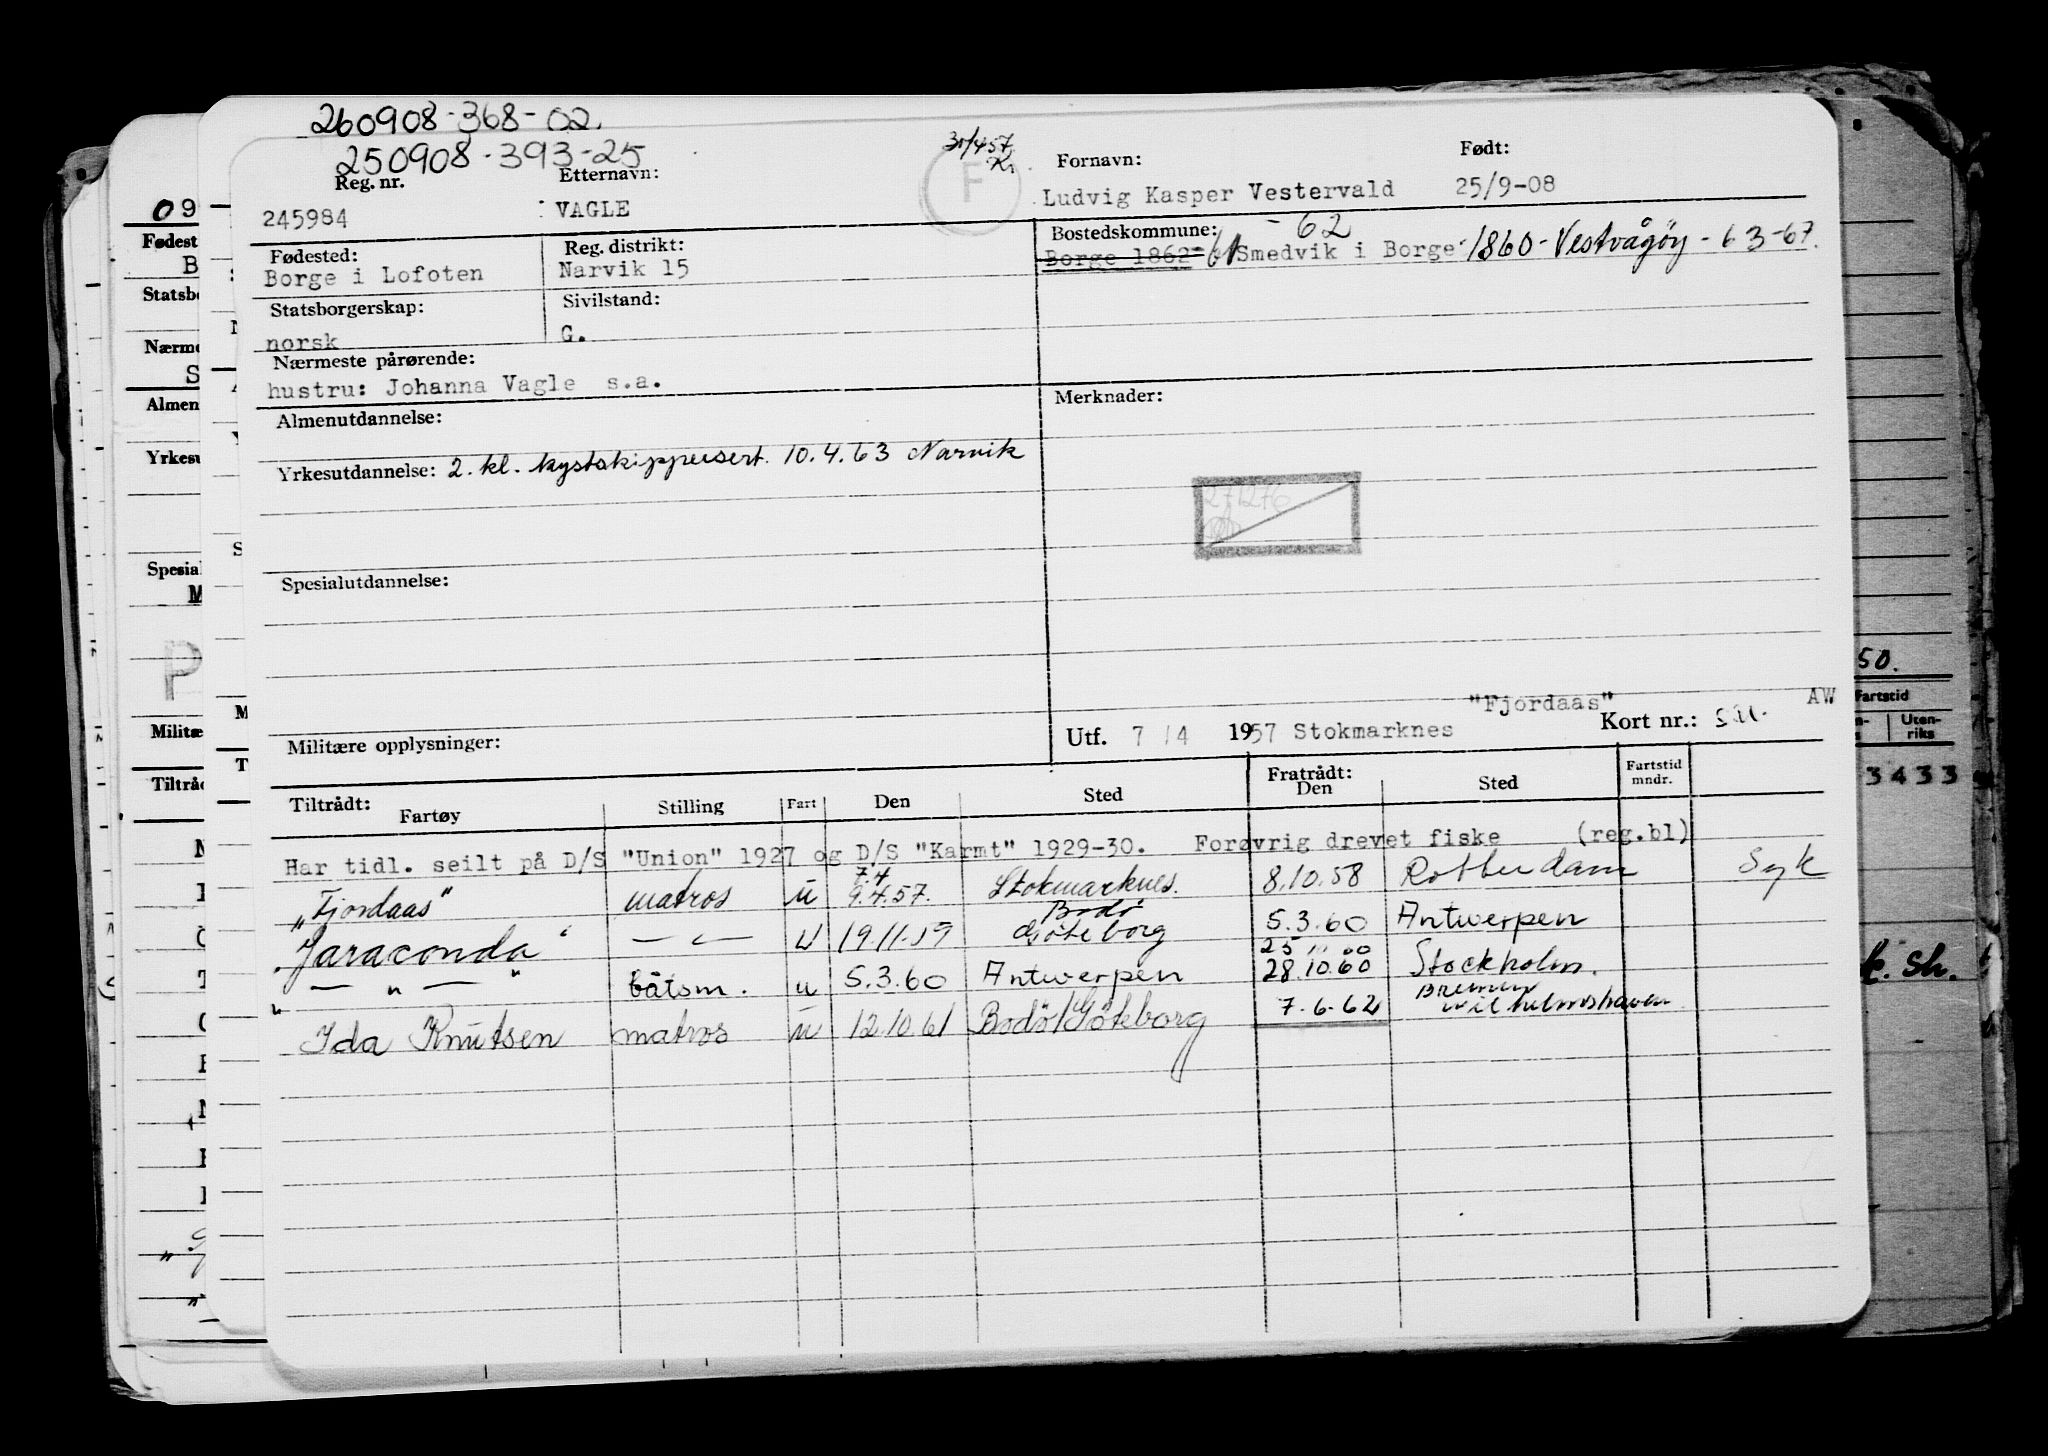 260908-368-02.
250908-393-25
30/4 57
Kr.
F
Reg. nr.
Etternavn:
Fornavn:
Født:
245984
VAGLE
Ludvig Kasper Vestervald
25/9-08
Fødested:
Reg. distrikt:
Bostedskommune:
-62
Borge i Lofoten
Narvik 15
Borge 1862- 61 Smedvik i Borge - 1860 - Vestvågøy - 6 3-67.
Statsborgerskap:
Sivilstand:
norsk
G.
Nærmeste pårørende:
hustru: Johanna Vagle s.a.
Almenutdannelse:
Merknader:
Yrkesutdannelse: 2. kl. kystskippersert. 10.4.63 Narvik
271276
Spesialutdannelse:
Militære opplysninger:
"Fjordaas"
Utf. 7/4 1957 Stokmarknes
Kort nr.:
AW
Tiltrådt:
Fartøy
Stilling
Fart
Den
Sted
Fratrådt:
Den
Sted
Fartstid
mndr.
Har tidl. seilt på D/S "Union" 1927 og D/S "Karmt" 1929-30. Forøvrig drevet fiske (reg.bl)
"Fjordaas" matros u 7.4 9.4.57. Stokmarknes. 8.10.58 Rotterdam Syk
"Jaraconda" — " — u 19.11.59 Bodö Göteborg 5.3.60 Antwerpen
— " — båtsm. u 5.3.60 Antwerpen 25 28.10.60 Stockholm.
"Ida Knutsen" matros u 12.10.61 Bodö/Göteborg 7.6.62 Bremen Wilhelmshaven
09
Fødest
B
Statsbo
Nærme
S
Almen
Yrkesu
Spesial
M
P
Militæ
Tiltråd
50.
Fartstid
Uten-
riks
3433
sh.